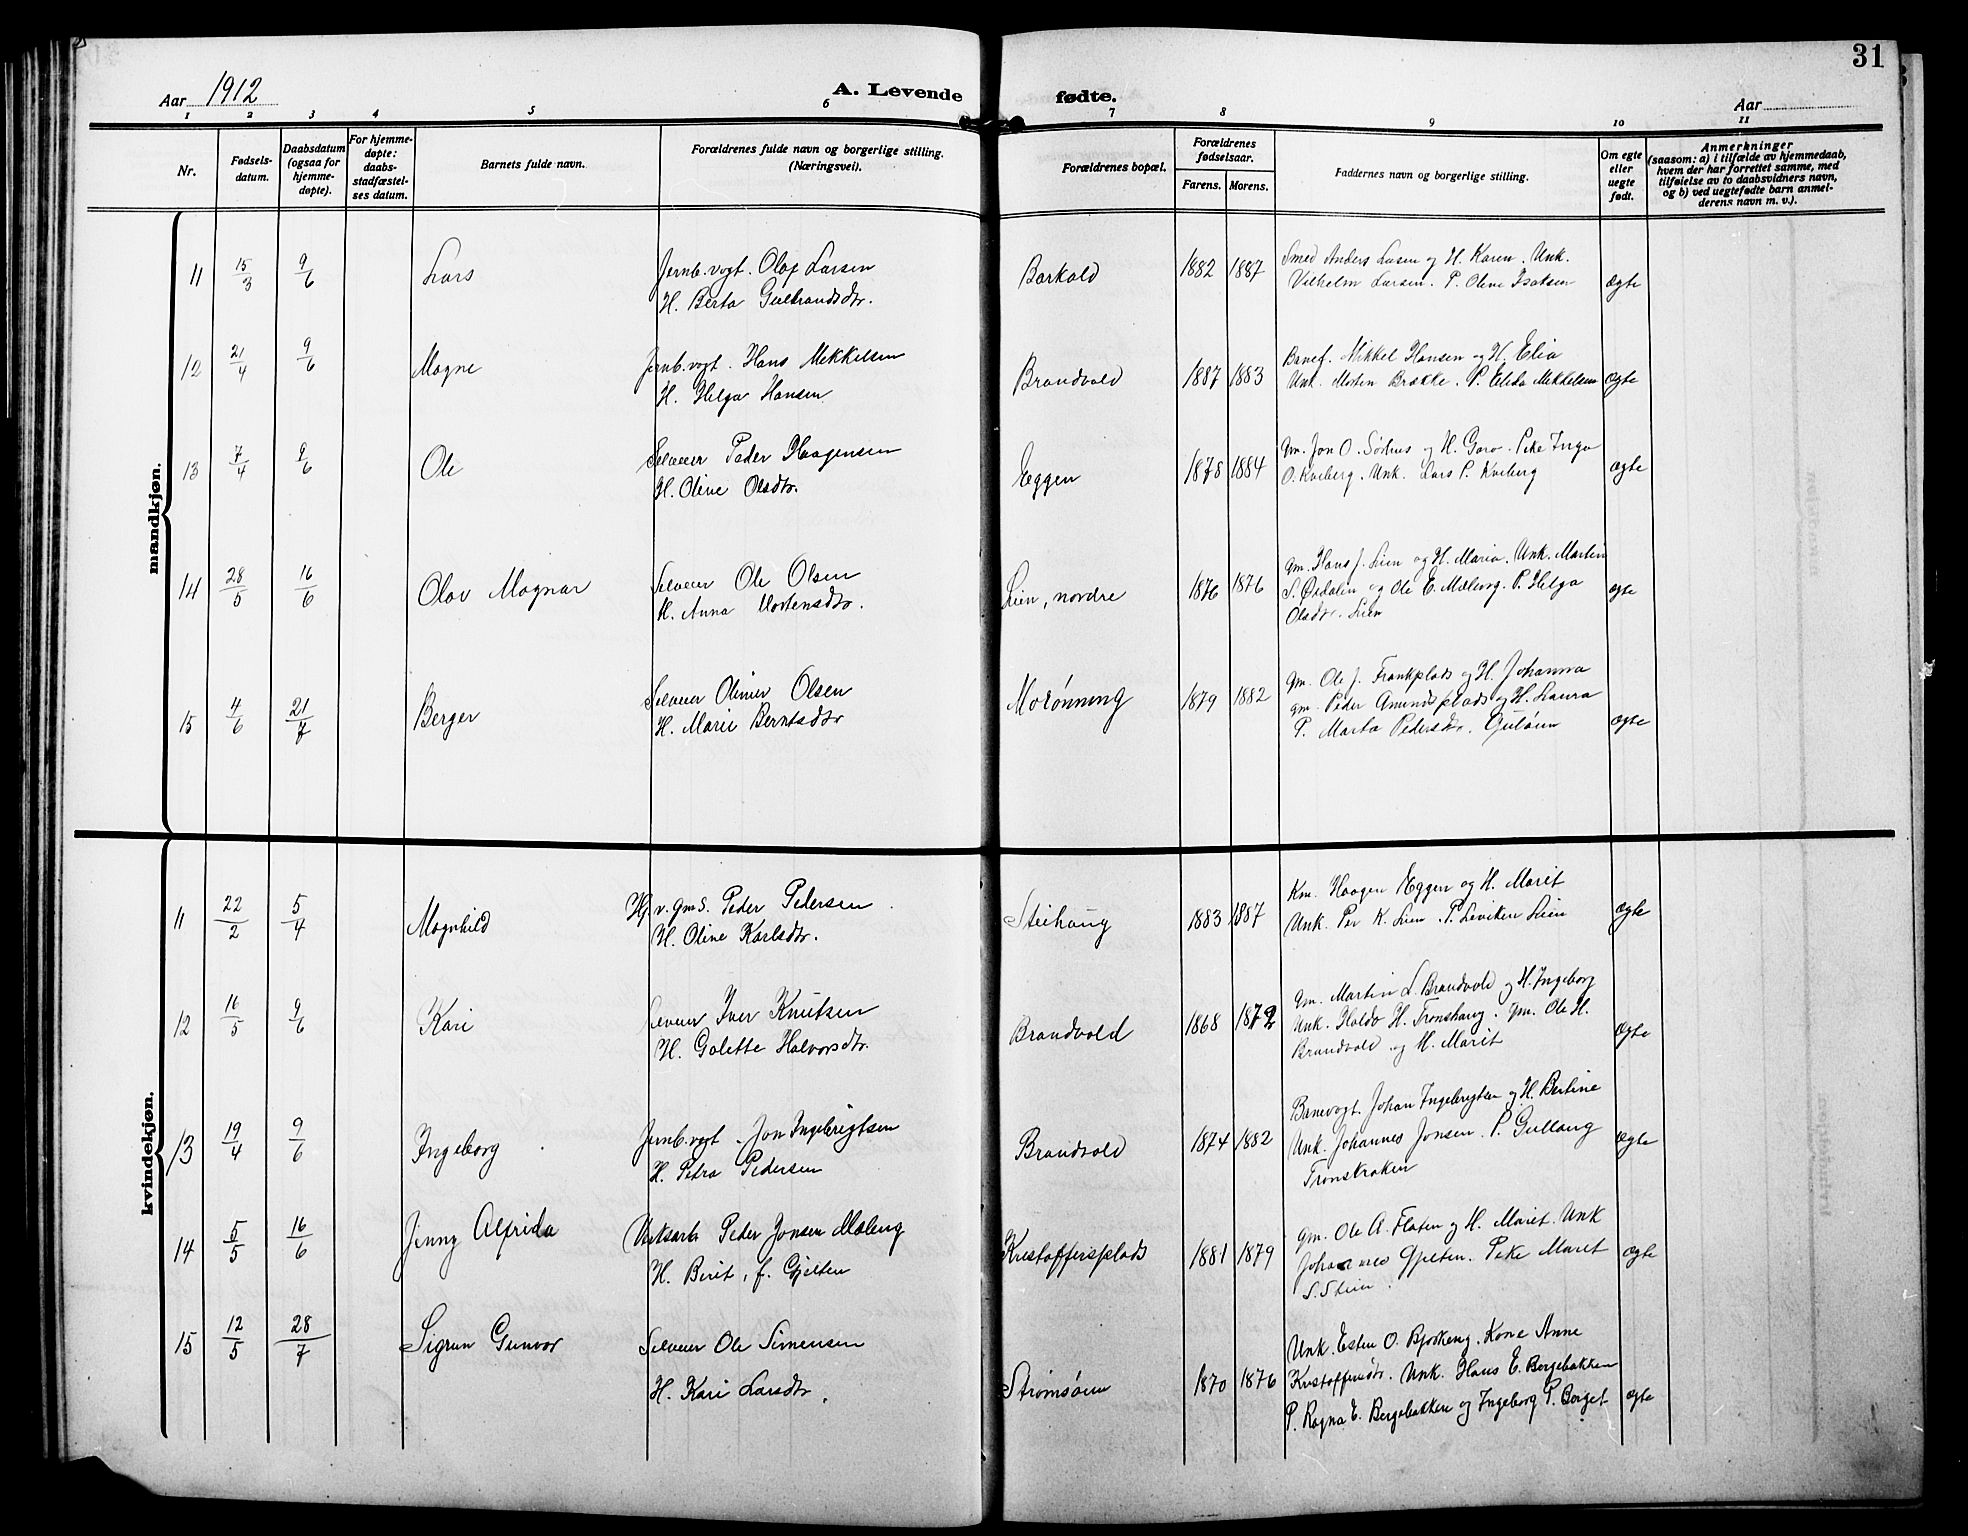 31
Aar 1912
A. Levende
fødte.
Aar
1 2 3 4 5 6 7 8 9 10 11
Nr.
Fødsels-
datum.
Daabsdatum
(ogsaa for
hjemme-
døpte).
For hjemme-
døpte:
daabs-
stadfæstel-
ses datum.
Barnets fulde navn.
Forældrenes fulde navn og borgerlige stilling.
(Næringsvei).
Forældrenes bopæl.
Forældrenes
fødselsaar.
Farens. Morens.
Faddernes navn og borgerlige stilling.
Om egte
eller
uegte
født.
Anmerkninger
(saasom: a) i tilfælde av hjemmedaab,
hvem der har forrettet samme, med
tilføielse av to daabsvidners navn,
og b) ved uegtefødte barn anmel-
derens navn m. v.).
mandkjøn.
11 15/3 9/6 Lars Jernb.vogt. Olaf Larsen Barkald 1882 1887 Smed Anders Lasen og H. Karen. Unk.
H. Berta Gulbrandsdtr. Vilhelm Larsen. P. Oline Isaksen ægte
12 21/4 9/6 Magne Jernb.vogt. Hans Mikkelsen Brandvold 1887 1883 Banef. Mikkel Hansen og H. Elia
H. Helga Hansen Unk. Morten Brække. P. Elida Mikkelsen ægte
13 7/4 9/6 Ole Selveier Peder Haagensen Eggen 1878 1884 Gm. Jon O. Sørhus og H. Goro. Pike Inga
H. Oline Olsdtr. O. Kveberg. Unk. Lars P. Kveberg ægte
14 28/5 16/6 Olav Magnar Selveier Ole Olsen Lien, nordre 1876 1876 gm. Hans J. Lien og H. Maria. Unk. Martin
H. Anna Mortensdtr. S. Øidalen og Ole E. Mæleng. P. Helga ægte
Olsdtr. Lien
15 4/6 21/7 Berger Selveier Oliner Olsen Morønning 1879 1882 gm. Ole J. Frankplads og H. Johanna
H. Marie Berntsdtr gm. Peder Amundsplads og H. Laura
P. Marta Pedersdtr. Guløien ægte
kvindekjøn.
11 22/2 5/4 Magnhild Hg. v. gms. Peder Pedersen Steihaug 1883 1887 Km. Haagen Eggen og H. Marit
H. Oline Karlsdtr. Unk. Per K. Lien. P. Leviken Lien ægte
12 16/5 9/6 Kari Selveier Iver Knutsen Brandvold 1868 1872 gm. Martin L. Brandvold og H. Ingeborg
H. Golette Halvorsdtr. Unk. Haldo H. Tronshaug. gm. Ole H.
Brandvold og H. Marit ægte
13 19/4 9/6 Ingeborg Jernb.vogt. Jon Ingebrigtsen Brandvold 1874 1882 Banevogt Johan Ingebrigtsen og H. Berline
H. Petra Pedersen Unk. Johannes Jonsen. P. Gullaug ægte
Tronskroken
14 5/5 16/6 Jenny Alfrida Verksarb Peder Jonsen Mæleng Kristoffersplads 1881 1879 gm. Ole A. Flaten og H. Marit. Unk
H. Berit, f. Gjelten Johannes Gjelten. Pike Maret ægte
S. Stien.
15 12/5 28/7 Sigrun Gunvor Selveier Ole Simensen Strømsøien 1870 1876 Unk. Esten O. Bjørkeng. Kone Anne
H. Kari Larsdtr. Kristoffersdtr. Unk. Hans E. Bergebakken
P. Ragna E. Bergebakken og Ingeborg P. Borget ægte